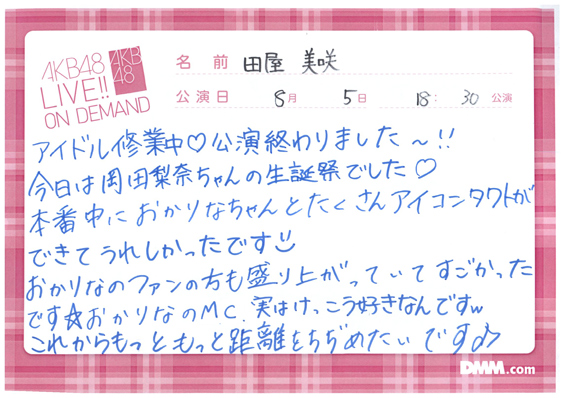 AKB48
LIVE!!
ON DEMAND
AKB
48
名前 田屋 美咲
公演日 8月 5日 18:30 公演
アイドル修業中♡公演終わりました〜!!
今日は岡田梨奈ちゃんの生誕祭でした♡
本番中におかりなちゃんとたくさんアイコンタクトが
できてうれしかったです
おかりなのファンの方も盛り上がっていてすごかった
です☆おかりなのMC、実はけっこう好きなんですw
これからもっともっと距離をちぢめたいです♪
DMM.com